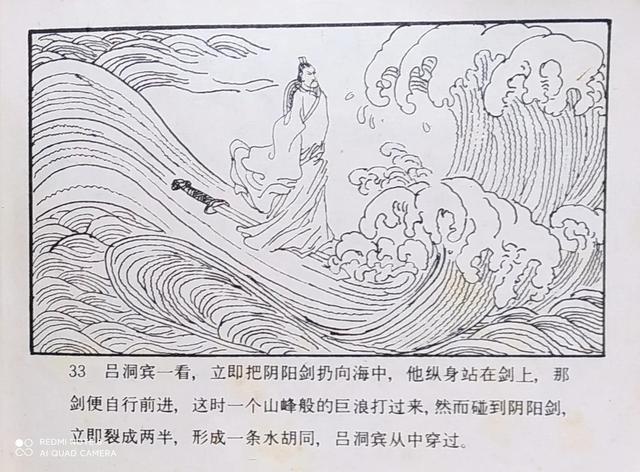 33 吕洞宾一看，立即把阴阳剑扔向海中，他纵身站在剑上，那
剑便自行前进，这时一个山峰般的巨浪打过来，然而碰到阴阳剑，
立即裂成两半，形成一条水胡同，吕洞宾从中穿过。
REDMI NOTE 8
AI QUAD CAMERA